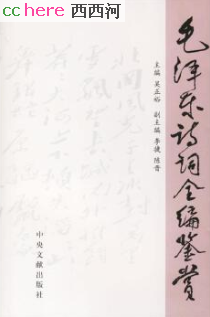 cchere 西西河
毛泽东诗词全编鉴赏
主编 吴正裕 副主编 李捷 陈晋
中央文献出版社